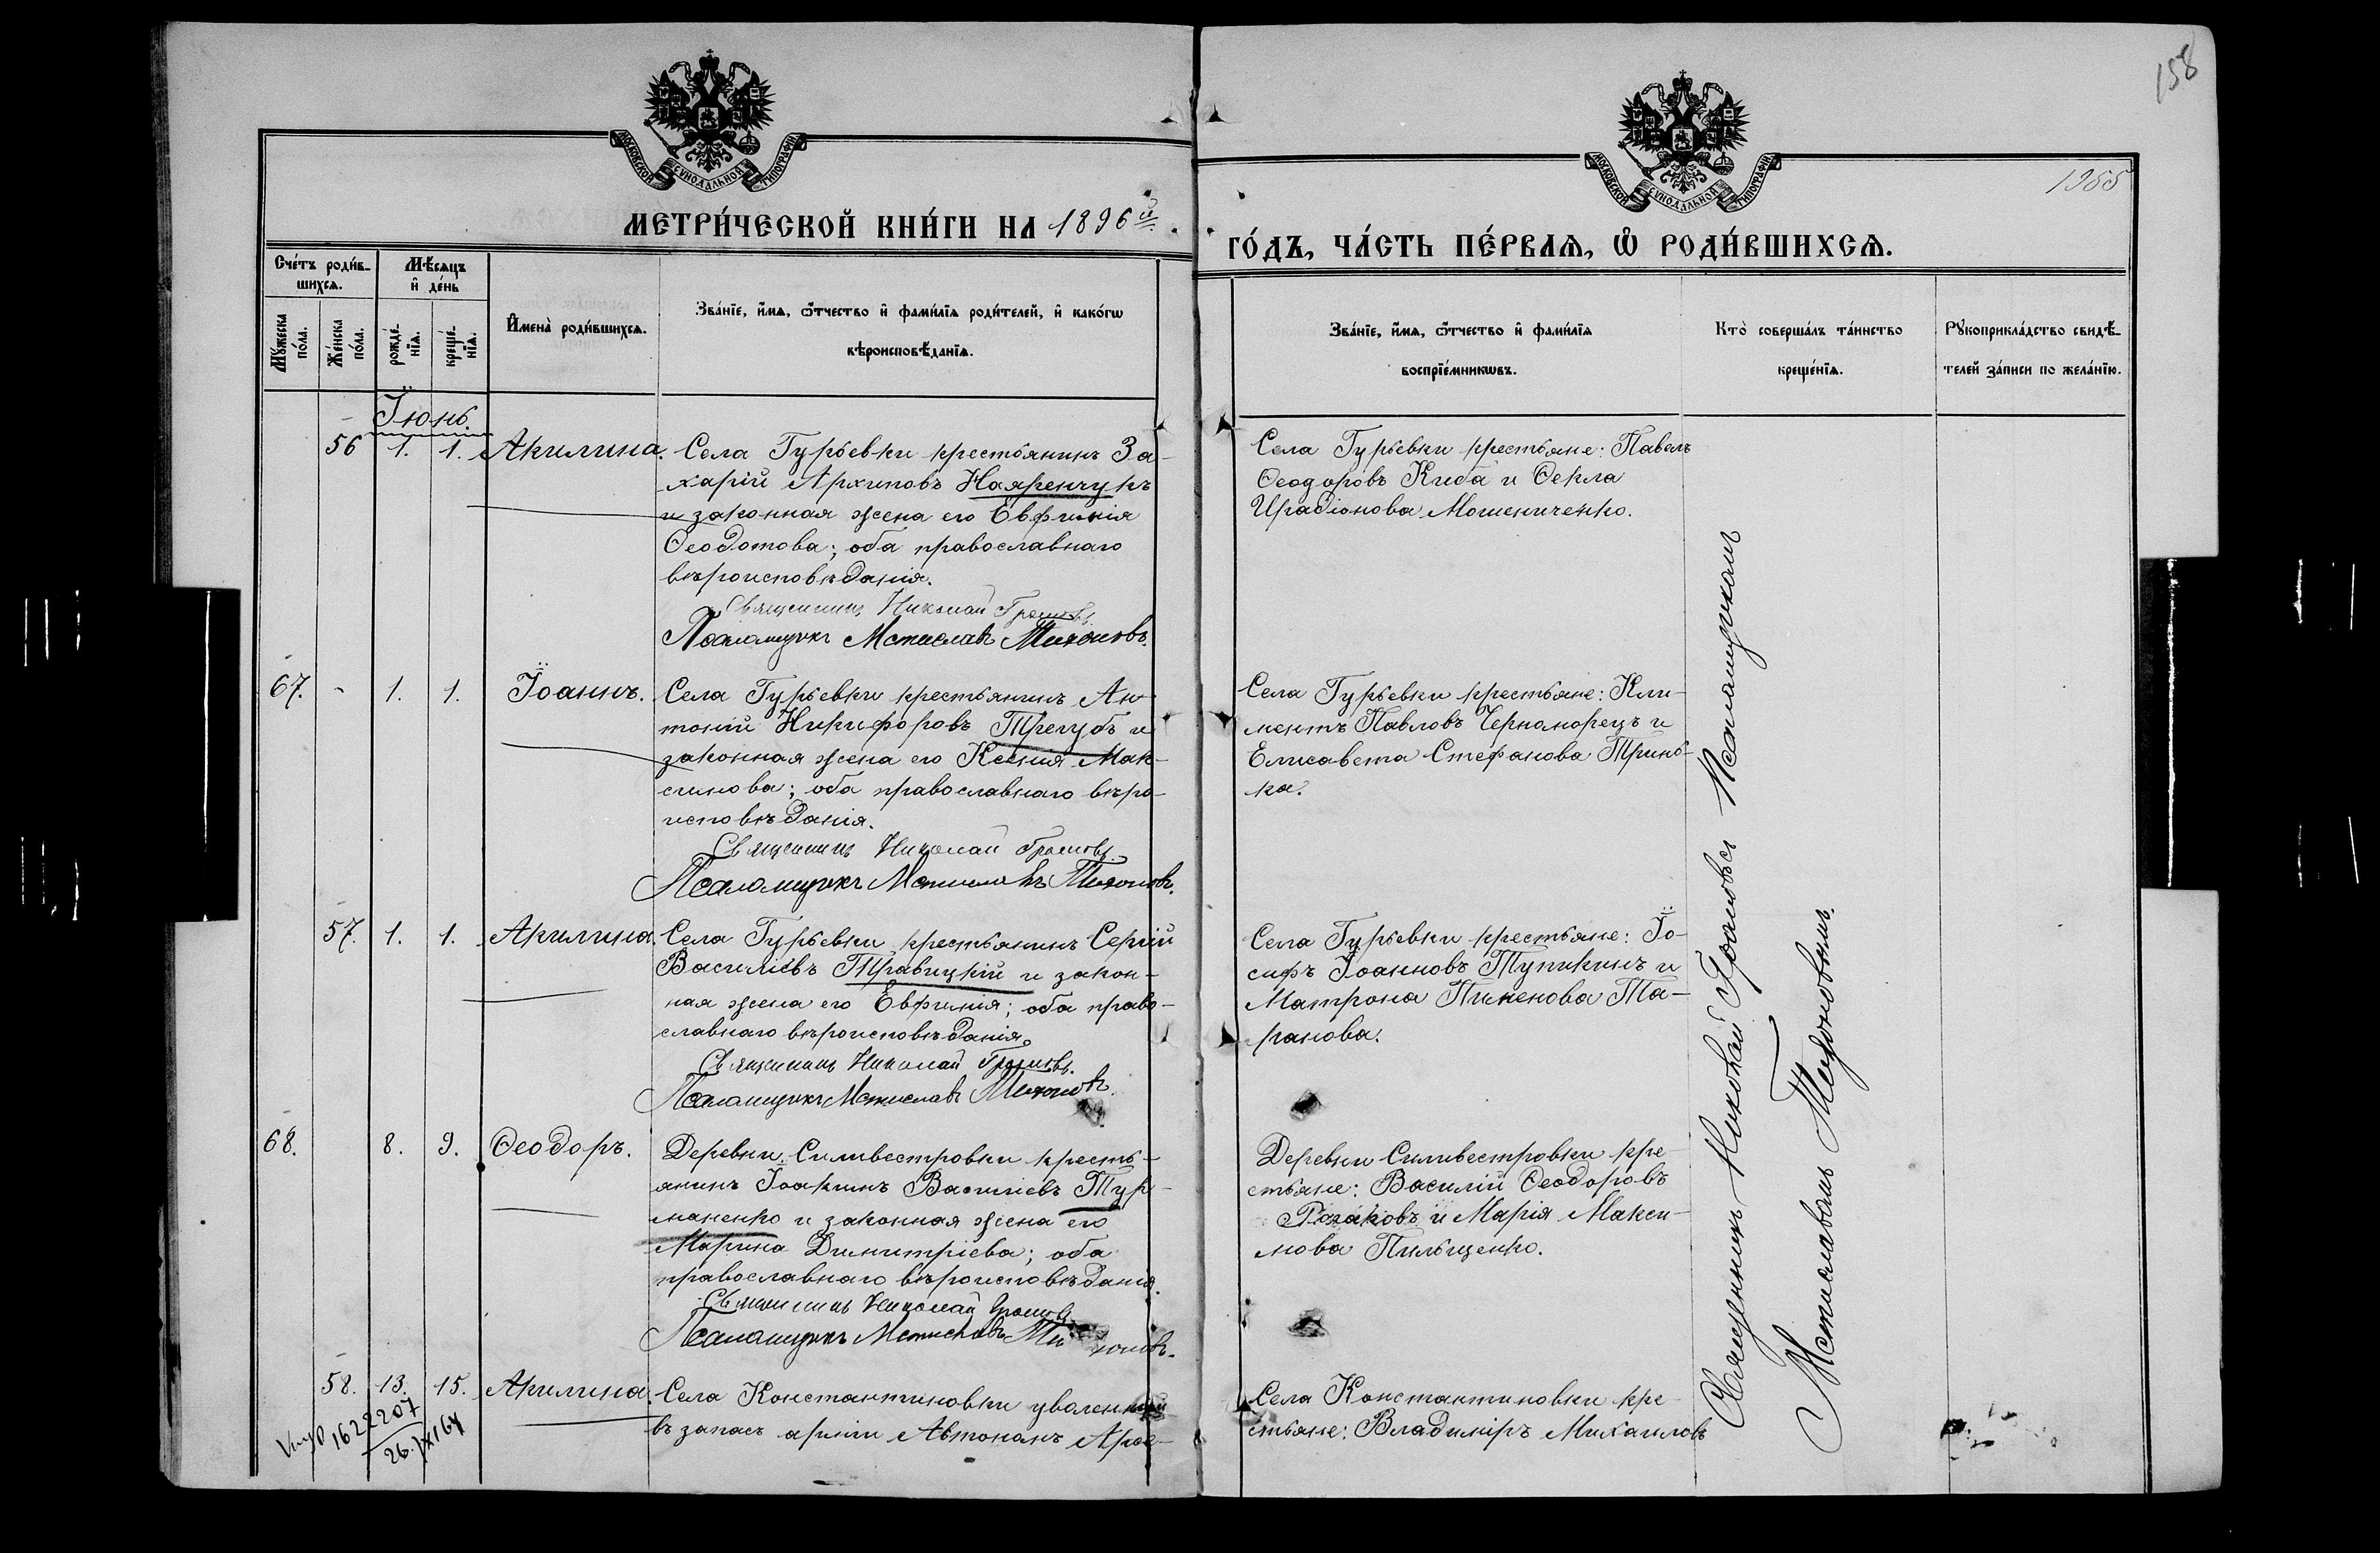 158
МОСКОВСКОЙ СѴНОДАЛЬНОЙ ТИПОГРАФІИ
МОСКОВСКОЙ СѴНОДАЛЬНОЙ ТИПОГРАФІИ
МЕТРИ́ЧЕСКОЙ КНИ́ГИ НА 1896й
ГО́ДЪ, ЧА́СТЬ ПЕ́РВАЯ, Ѽ РОДИ́ВШИХСѦ.
Сче́тъ роди́в-
шихсѧ.
Мꙋ́жеска по́ла.
Же́нска по́ла.
Мѣ́сѧцъ
и҆ де́нь
рожде́-
нїѧ.
креще́-
нїѧ.
И҆мена̀ роди́вшихсѧ.
Зва́нїе, и҆́мѧ, ѻ҆́тчество и҆ фами́лїѧ роди́телей, и҆ како́гѡ
вѣроисповѣ́данїѧ.
Зва́нїе, и҆́мѧ, ѻ҆́тчество и҆ фами́лїѧ
воспрїе́мникѡвъ.
Кто̀ соверша́лъ та́инство
креще́нїѧ.
Рꙋкоприкла́дство свидѣ́-
телей за́писи по жела́нїю.
Іюнь.
56 1. 1. Акилина.
Села Гурьевки крестьянинъ За-
харій Архиповъ
и законная жена его Евфимія
Ѳеодотова; оба православнаго
вѣроисповѣданія.
Священникъ Николай Громовъ.
Псаломщикъ Мстиславъ Тихоновъ.
Села Гурьевки крестьяне: Павелъ
Ѳеодоровъ Киба и Ѳекла
Иродіонова Мошениченко.
67. - 1. 1. Іоаннъ.
Села Гурьевки крестьянинъ Ан-
тоній Никифоровъ Трегубъ и
законная жена его Ксенія Мак-
симова; оба православнаго вѣро-
исповѣданія.
Священникъ Николай Громовъ.
Псаломщикъ Мстиславъ Тихоновъ.
Села Гурьевки крестьяне: Кли-
ментъ Павловъ Черноморецъ и
Елисавета Стефанова Тринь-
ка.
57. 1. 1. Акилина.
Села Гурьевки крестьянинъ Сергій
Василіевъ Травицкій и закон-
ная жена его Евфимія; оба право-
славнаго вѣроисповѣданія.
Священникъ Николай Громовъ.
Псаломщикъ Мстиславъ Тихоновъ.
Села Гурьевки крестьяне: Іо-
сифъ Іоанновъ Тупикинъ и
Матрона Пименова Та-
ранова.
68. 8. 9. Ѳеодоръ.
Деревни Силивестровки кресть-
янинъ Іоакимъ Василіевъ Тур-
маненко и законная жена его
Марина Димитріева; оба
православнаго вѣроисповѣданія.
Священникъ Николай Громовъ.
Псаломщикъ Мстиславъ Тихоновъ.
Деревни Силивестровки кре-
стьяне: Василій Ѳеодоровъ
и Марія Макси-
мова Пильщенко.
58. 13. 15. Акилина.
Села Константиновки уволенный
въ запасъ арміи Автономъ
Села Константиновки кре-
стьяне: Владиміръ Михаиловъ
1622207
26.IX.64
Священникъ Николай Громовъ съ Псаломщикомъ
Мстиславомъ Тихоновымъ.